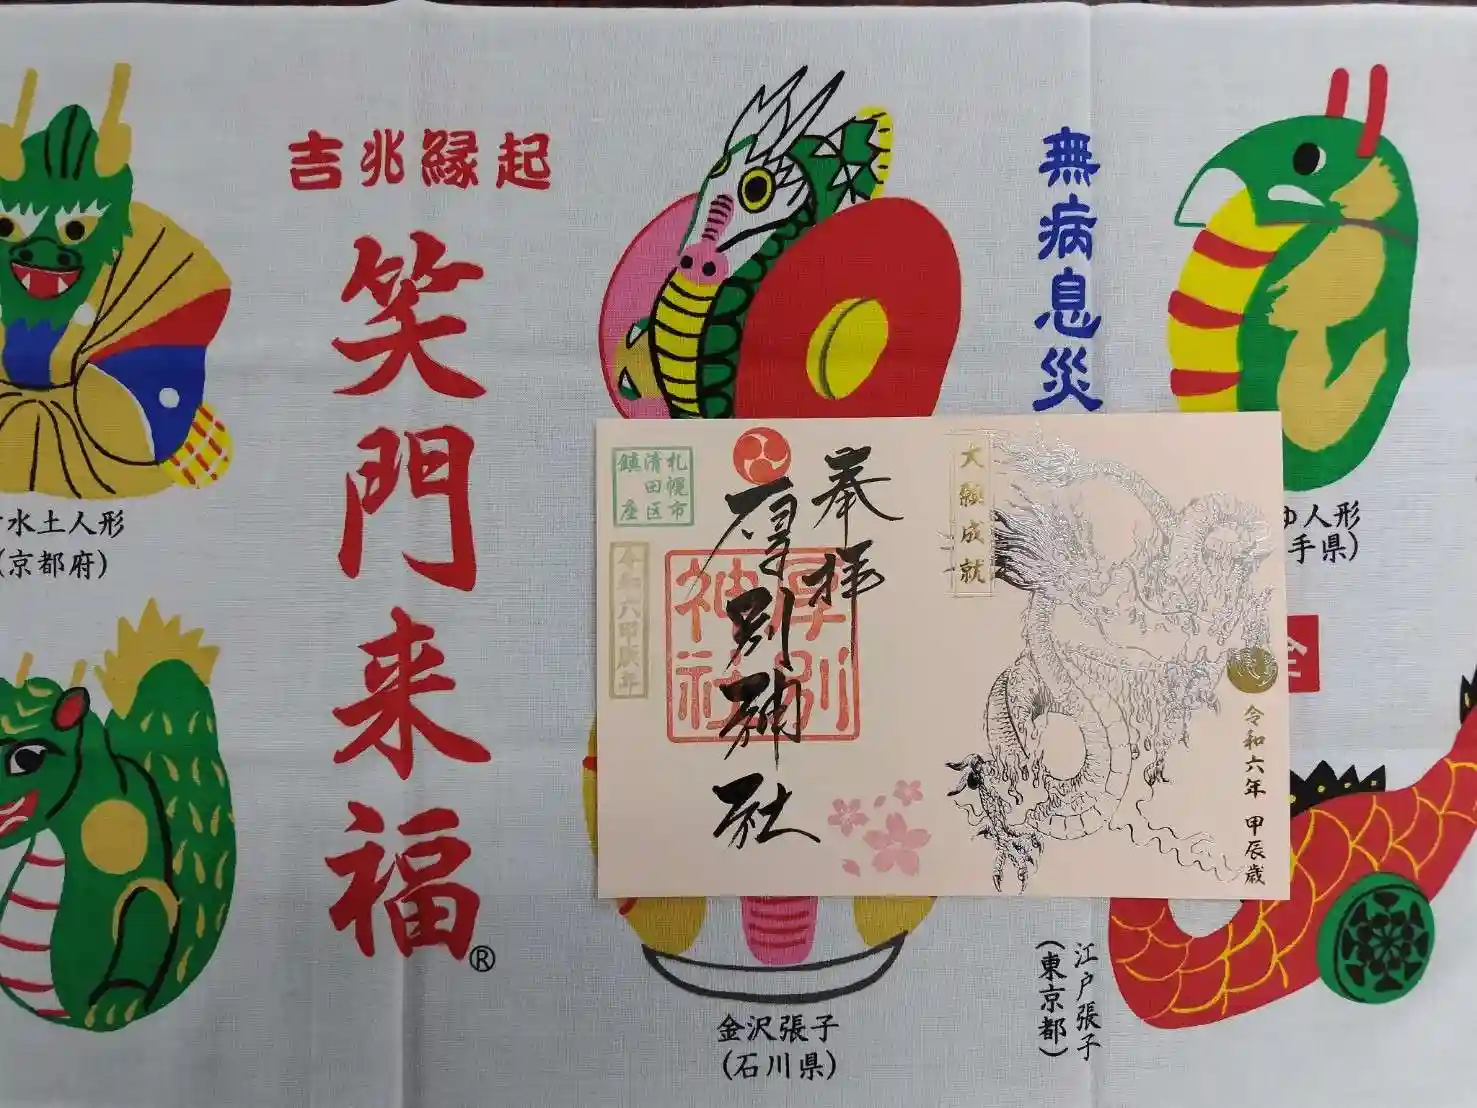 吉兆縁起
笑門来福®
無病息災
水土人形
(京都府)
人形
手県)
奉拝
厚別神社
札幌市
清田区
鎮座
令和六甲辰年
厚別
神社
大願成就
令和六年 甲辰歳
金沢張子
(石川県)
江戸張子
(東京都)